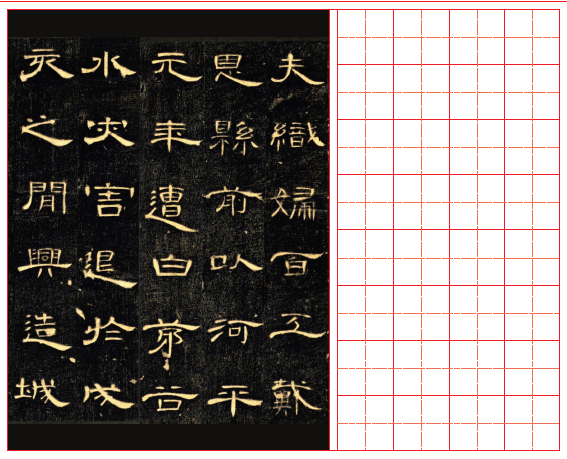 夫織婦百工戴
恩縣前以河平
元年遭白茅谷
水災害退於戌
亥之閒興造城